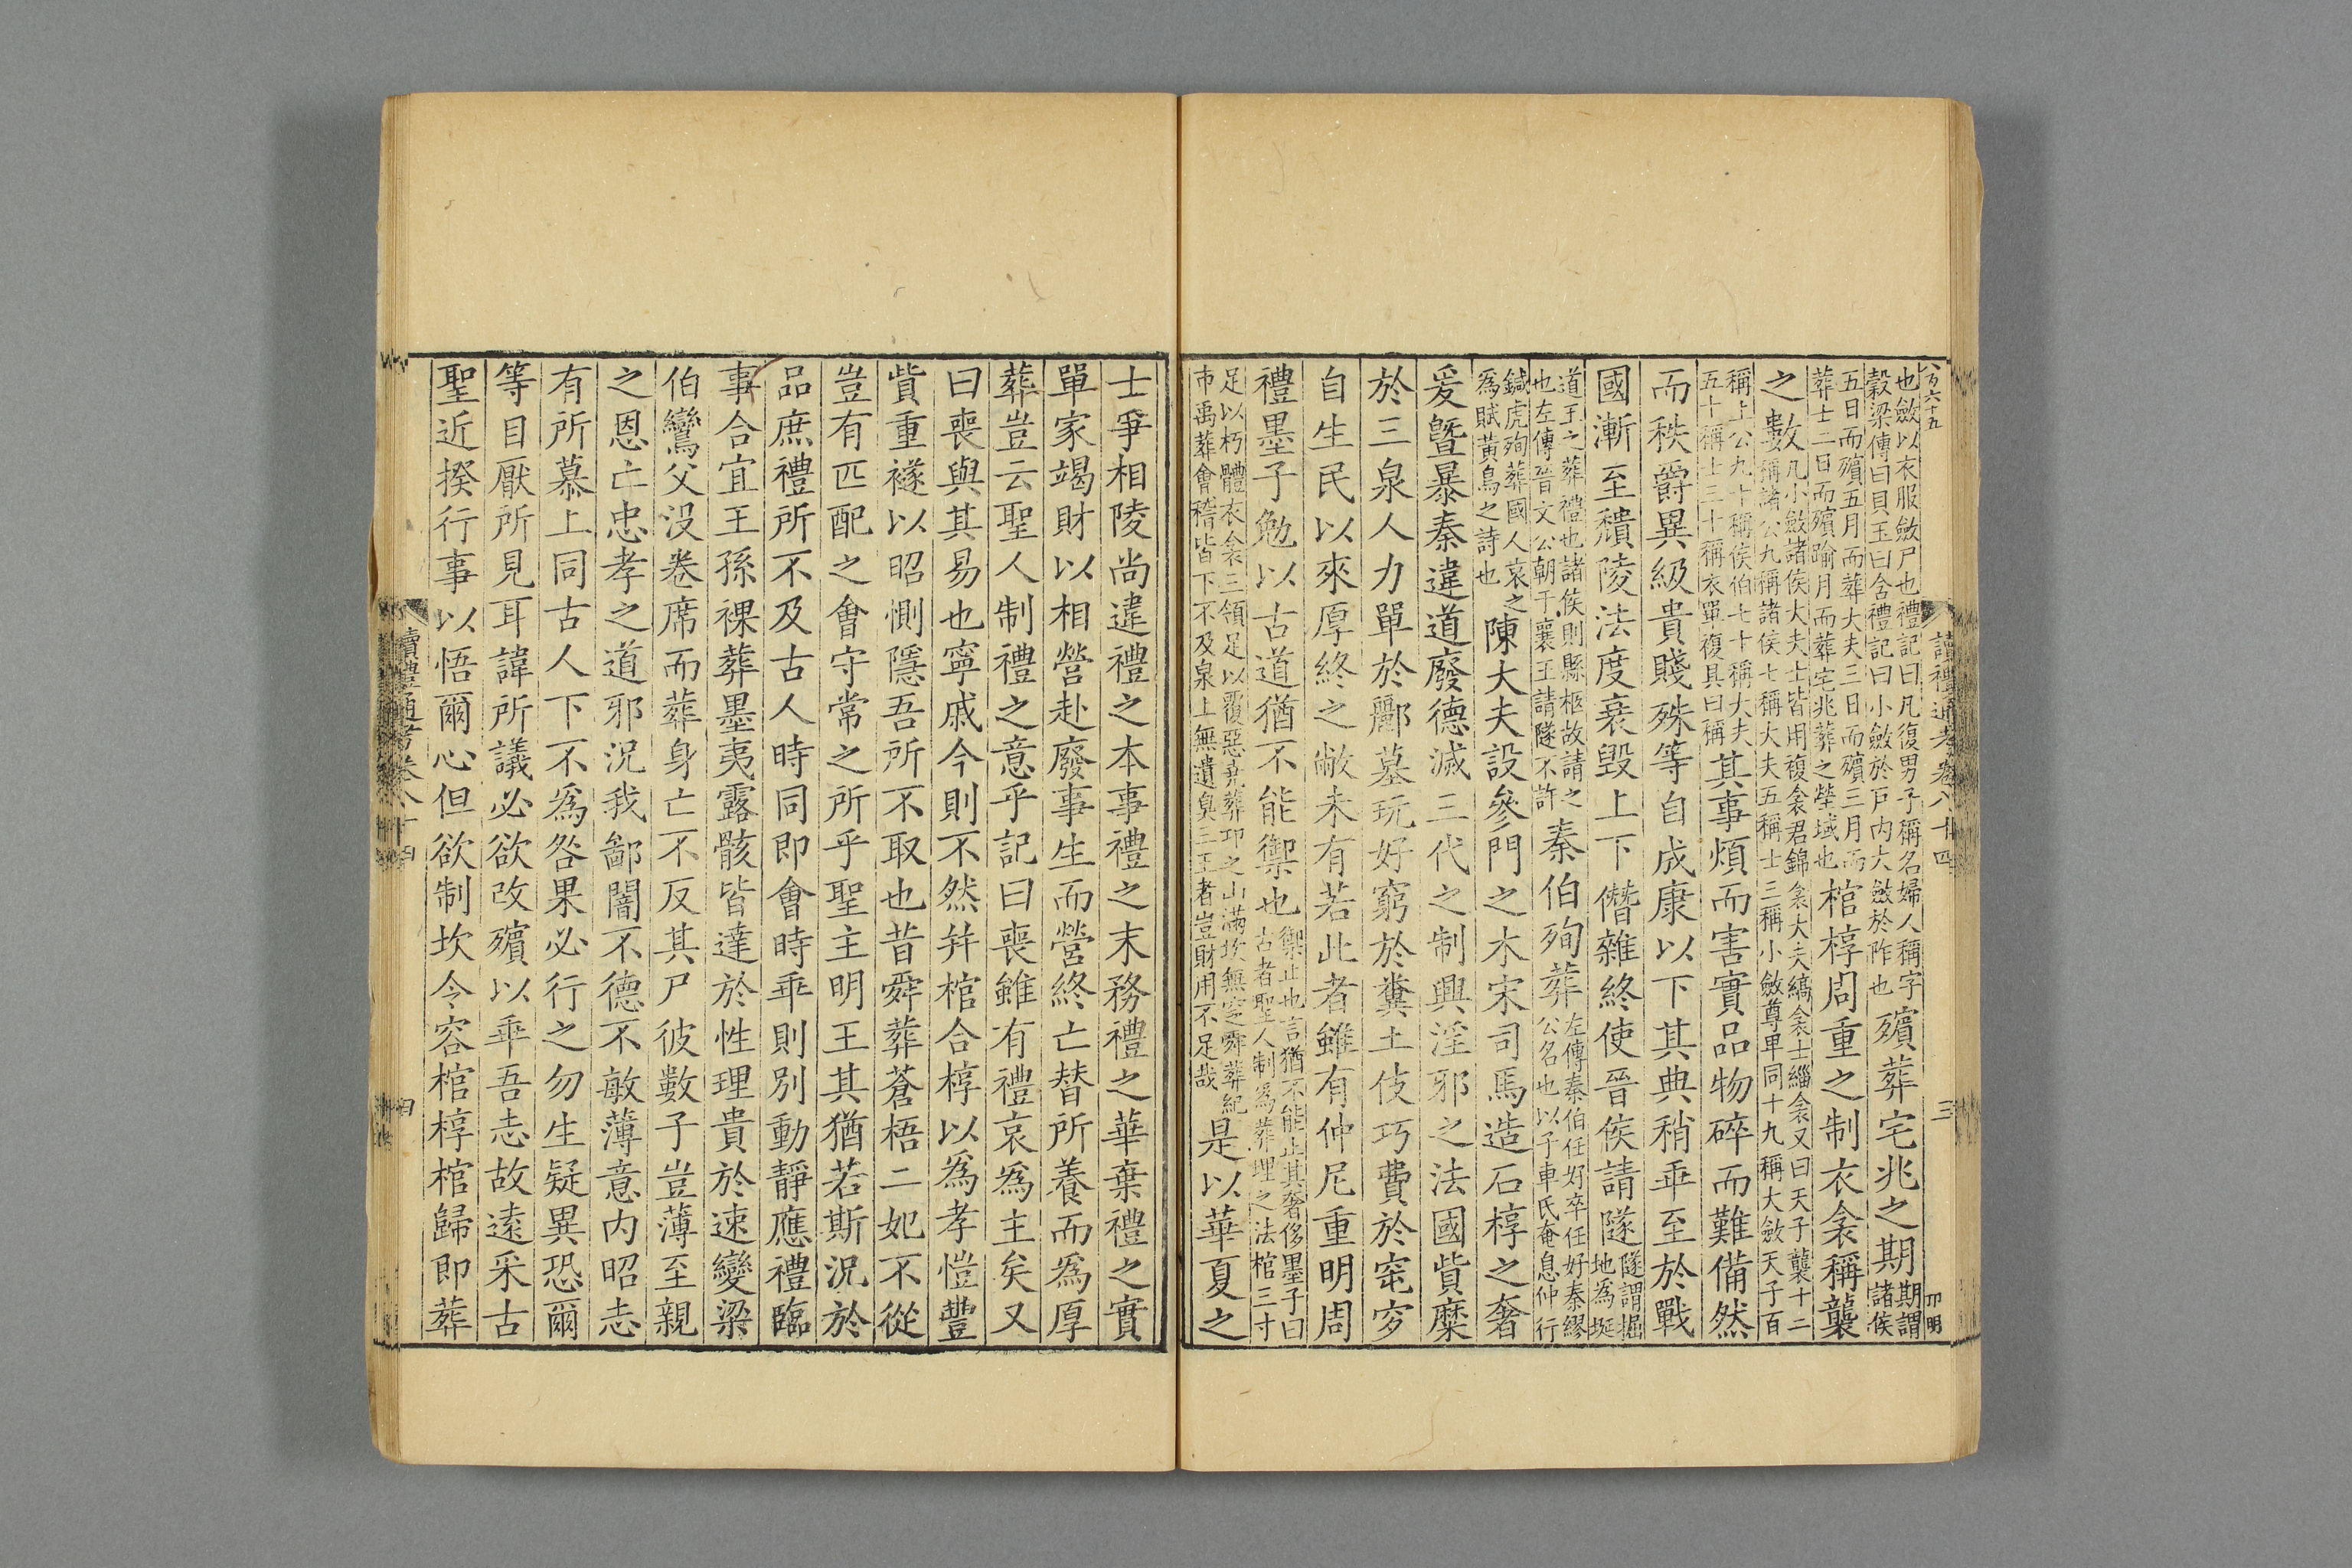 讀禮通考卷八十四 三
也斂以衣服斂尸也禮記曰凡復男子稱名婦人稱字
穀梁傳曰貝玉曰含禮記曰小斂於戶内大斂於阼也
殯葬宅兆之期
期謂
諸侯
五日而殯五月而葬大夫三日而殯三月而
葬士二日而殯踰月而葬宅兆葬之塋域也
棺椁周重之制衣衾稱襲
之數
凡小斂諸侯大夫士皆用複衾君錦衾大夫縞衾士緇衾又曰天子襲十二
稱諸公九稱諸侯七稱大夫五稱士三稱小斂尊卑同十九稱大斂天子百
稱上公九十稱侯伯七十稱大夫
五十稱士三十稱衣單複具曰稱
其事煩而害實品物碎而難備然
而秩爵異級貴賤殊等自成康以下其典稍乖至於戰
國漸至穨陵法度衰毁上下僭雜終使晉侯請隧
隧謂掘
地為埏
道王之葬禮也諸侯則縣柩故請之
也左傳晉文公朝于襄王請隧不許
秦伯殉葬
左傳秦伯任好卒任好秦繆
公名也以子車氏奄息仲行
鍼虎殉葬國人哀之
為賦黃鳥之詩也
陳大夫設參門之木宋司馬造石椁之奢
爰曁暴秦違道廢德滅三代之制興淫邪之法國貲糜
於三泉人力單於酈墓玩好窮於糞土伎巧費於窀穸
自生民以來厚終之敝未有若此者雖有仲尼重明周
禮墨子勉以古道猶不能禦也
禦止也言猶不能止其奢侈墨子曰
古者聖人制為葬埋之法棺三寸
足以朽體衣衾三領足以覆惡堯葬卭之山滿坎無窆舜葬紀
市禹葬會稽皆下不及泉上無遺臭三王者豈財用不足哉
是以華夏之
士爭相陵尚違禮之本事禮之末務禮之華棄禮之實
單家竭財以相營赴廢事生而營終亡替所養而為厚
葬豈云聖人制禮之意乎記曰喪雖有禮哀為主矣又
曰喪與其易也寧戚今則不然并棺合椁以為孝愷豐
貲重襚以昭惻隱吾所不取也昔舜葬蒼梧二妃不從
豈有匹配之會守常之所乎聖主明王其猶若斯況於
品庶禮所不及古人時同即會時乖則別動靜應禮臨
事合宜王孫裸葬墨夷露骸皆達於性理貴於速變梁
伯鸞父没卷席而葬身亡不反其尸彼數子豈薄至親
之恩亡忠孝之道邪況我鄙闇不德不敏薄意内昭志
有所慕上同古人下不為咎果必行之勿生疑異恐爾
等目厭所見耳諱所議必欲改殯以乖吾志故遠采古
聖近揆行事以悟爾心但欲制坎令容棺椁棺歸即葬
讀禮通考卷八十四 四